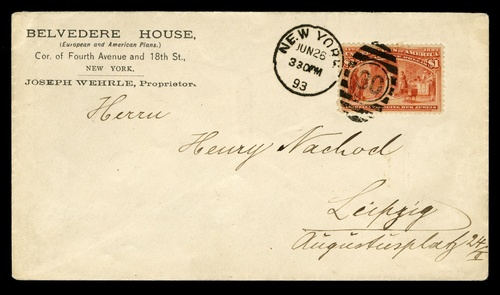 BELVEDERE HOUSE,
(European and American Plans.)
Cor. of Fourth Avenue and 18th St.,
NEW YORK.
JOSEPH WEHRLE, Proprietor.
NEW YORK
JUN 26
330PM
93
$1
Herrn
Henry Nachod
Leipzig
Augustusplatz 24/II